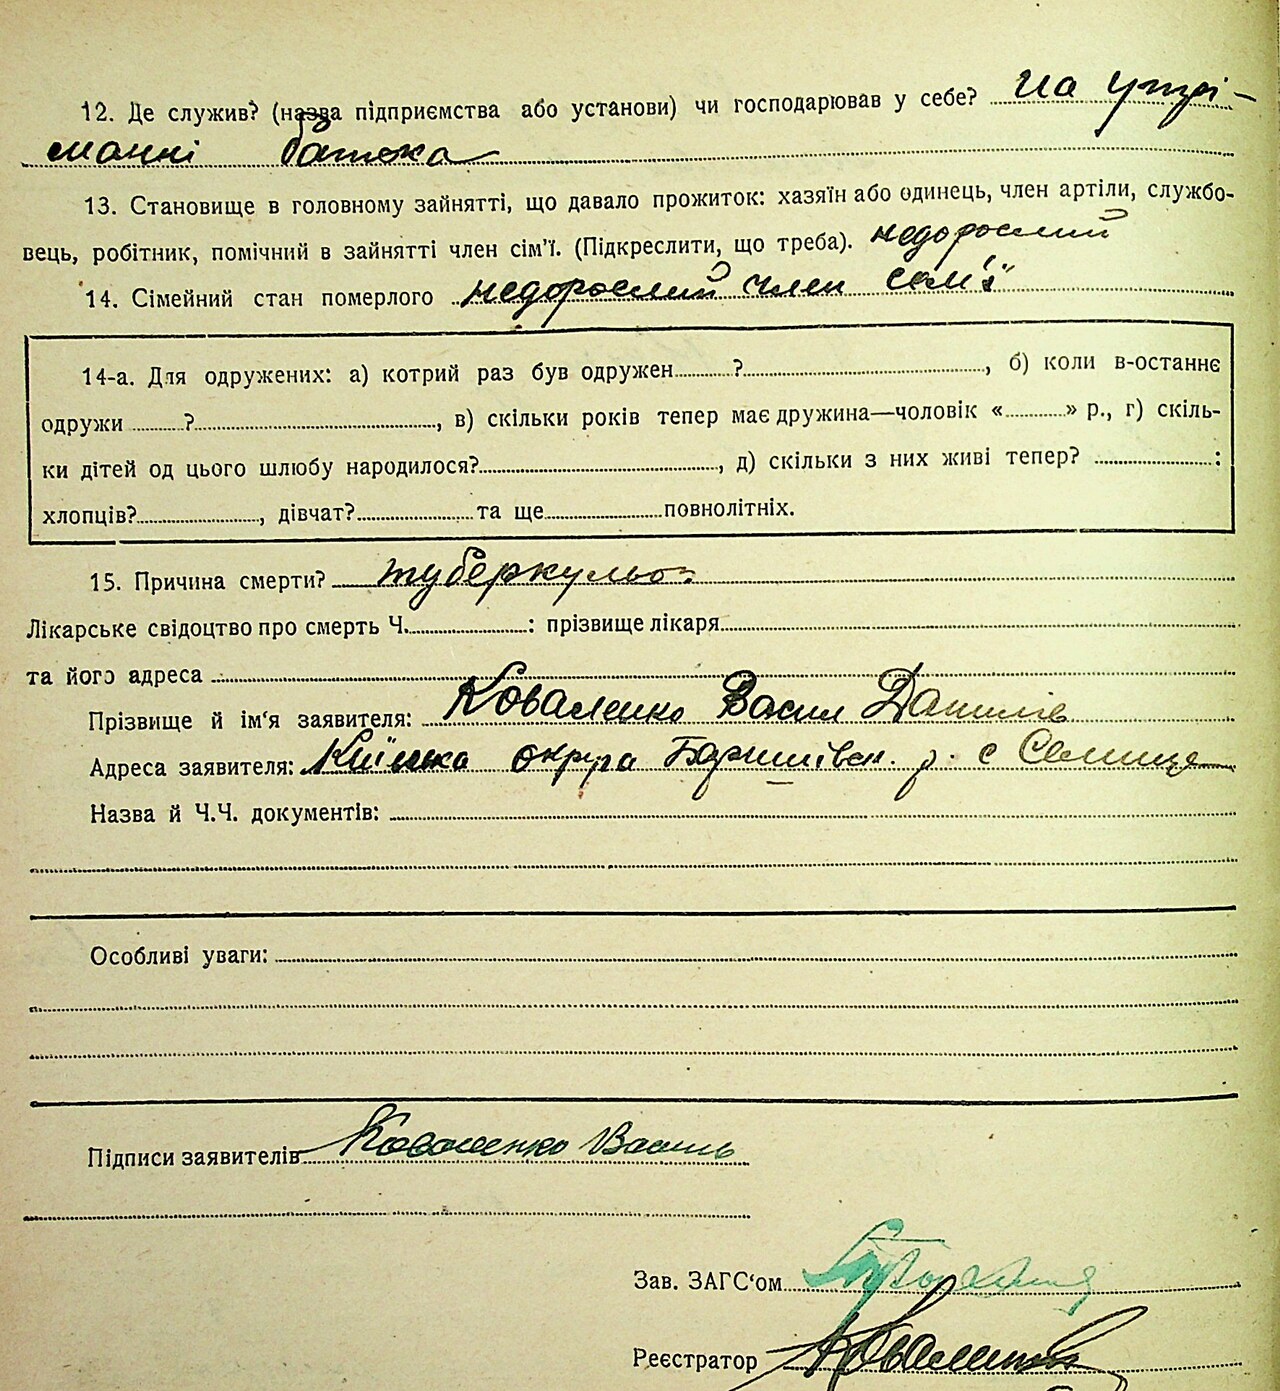 12. Де служив? (назва підприємства або установи) чи господарював у себе? на утрі-
манні батька
13. Становище в головному зайнятті, що давало прожиток: хазяїн або одинець, член артіли, службо-
вець, робітник, помічний в зайнятті член сім'ї. (Підкреслити, що треба). недорослий
14. Сімейний стан померлого недорослий член сем'ї
14-а. Для одружених: а) котрий раз був одружен ? , б) коли в-останнє
одружи ? , в) скільки років тепер має дружина—чоловік « » р., г) скіль-
ки дітей од цього шлюбу народилося? , д) скільки з них живі тепер? :
хлопців? , дівчат? та ще повнолітніх.
15. Причина смерти? туберкульоз
Лікарське свідоцтво про смерть Ч. : прізвище лікаря
та його адреса
Прізвище й ім'я заявителя: Коваленко Васил Данилів
Адреса заявителя: Київска округа Баришівск. р. с Селище
Назва й Ч.Ч. документів:
Особливі уваги:
Підписи заявителів Коваленко Василь
Зав. ЗАГС'ом
Реєстратор